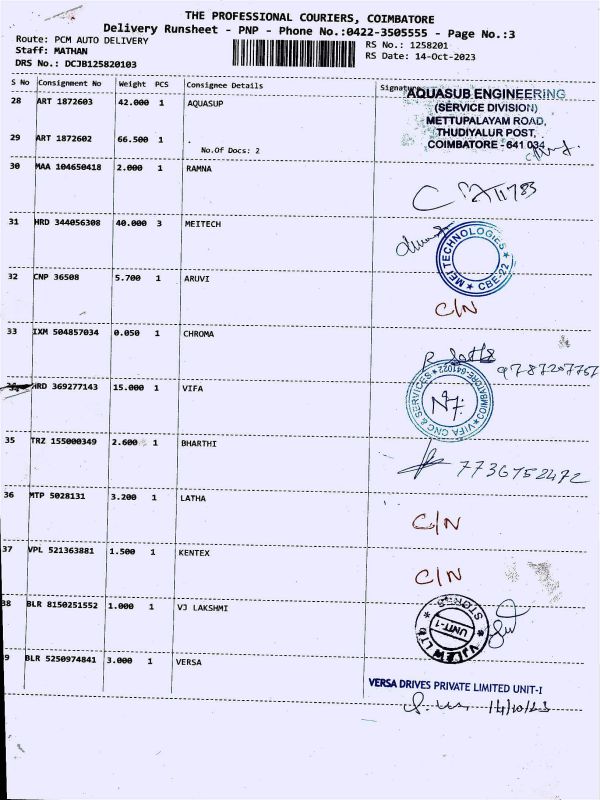 THE PROFESSIONAL COURIERS, COIMBATORE
Delivery Runsheet - PNP - Phone No.:0422-3505555 - Page No.:3
Route: PCM AUTO DELIVERY
Staff: MATHAN
DRS No.: DCJB125820103
RS No.: 1258201
RS Date: 14-Oct-2023
S No Consignment No Weight PCS Consignee Details Signature
28 ART 1872603 42.000 1 AQUASUP
AQUASUB ENGINEERING
(SERVICE DIVISION)
METTUPALAYAM ROAD,
THUDIYALUR POST,
COIMBATORE - 641 034
29 ART 1872602 66.500 1 .
No.Of Docs: 2
30 MAA 104650418 2.000 1 RAMNA
31 HRD 344056308 40.000 3 MEITECH
MEI TECHNOLOGIES
* CBE-22 *
32 CNP 36508 5.700 1 ARUVI
C/N
33 IXM 504857034 0.050 1 CHROMA
34 HRD 369277143 15.000 1 VIFA
* VIFA CNC & SERVICES * COIMBATORE-641022
35 TRZ 155000349 2.600 1 BHARTHI
7736752472
36 MTP 5028131 3.200 1 LATHA
C/N
37 VPL 521363881 1.500 1 KENTEX
C/N
38 BLR 8150251552 1.000 1 VJ LAKSHMI
STORES
UNIT-1
39 BLR 5250974841 3.000 1 VERSA
VERSA DRIVES PRIVATE LIMITED UNIT-I
14/10/23